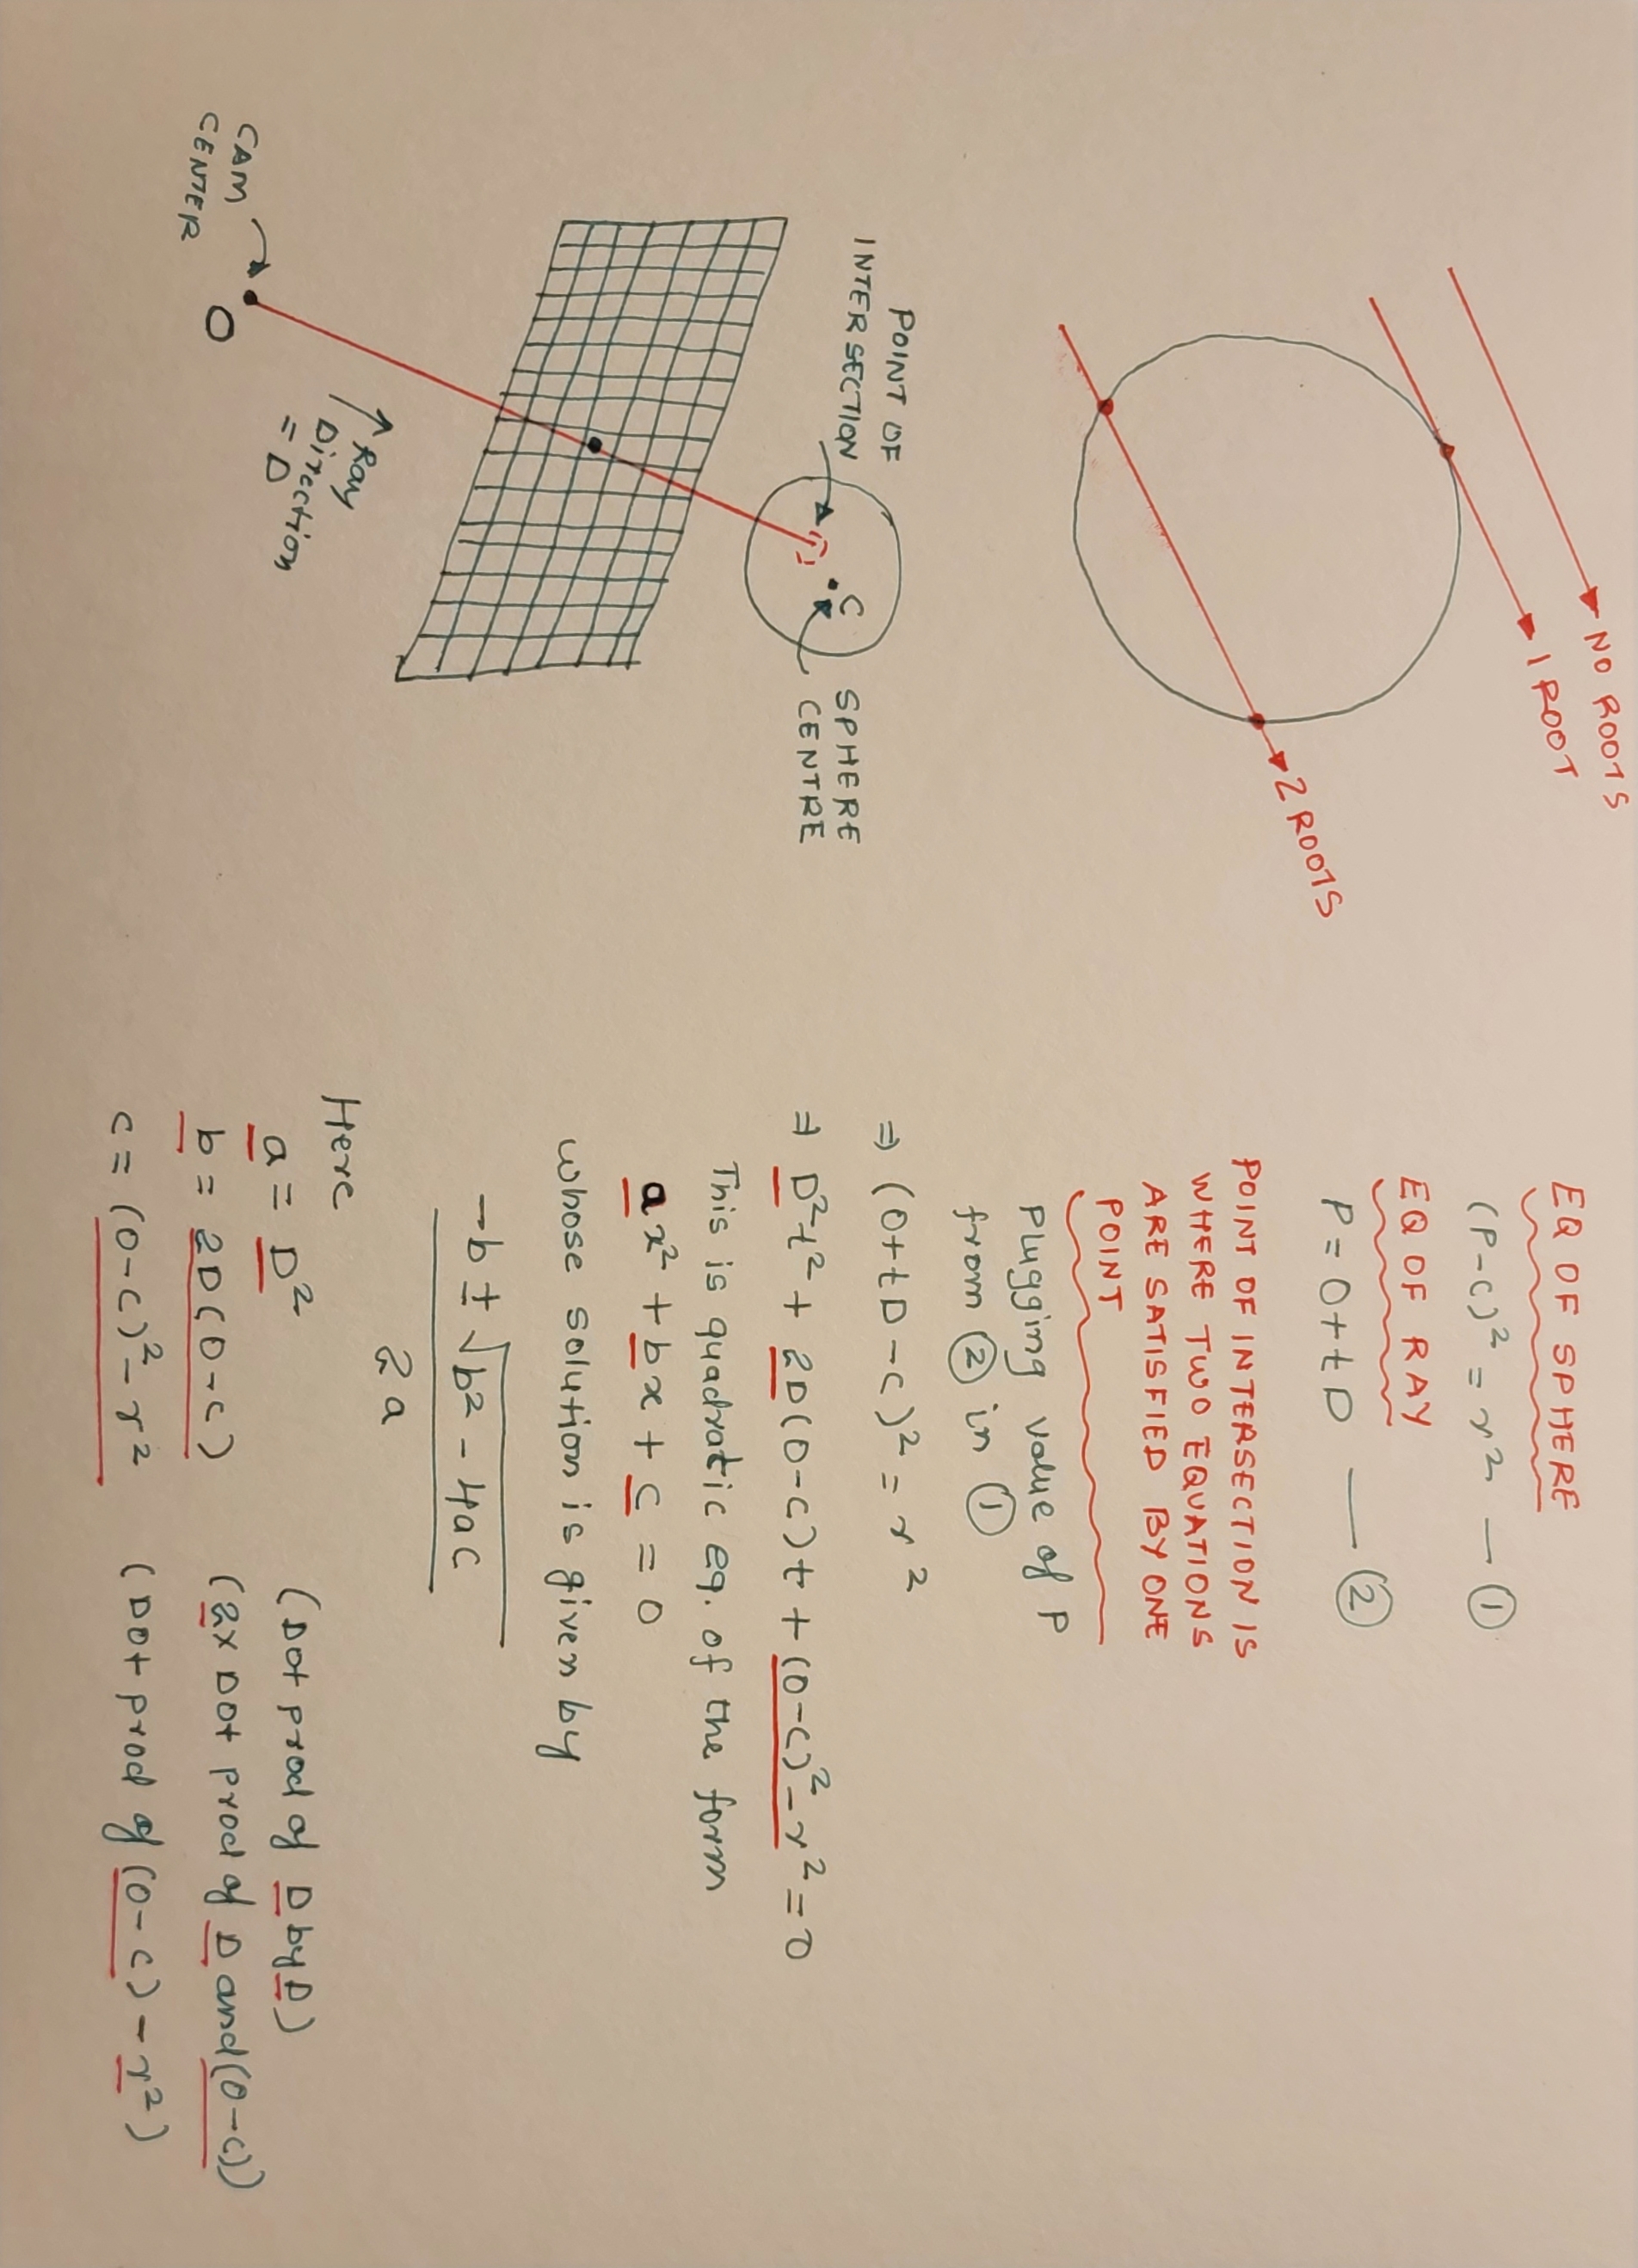 NO ROOTS
1 ROOT
2 ROOTS
POINT OF
INTERSECTION
C
SPHERE
CENTRE
Ray
Direction
= D
CAM
CENTER
O
EQ OF SPHERE
(P-C)² = r² — ①
EQ OF RAY
P = O+tD — ②
POINT OF INTERSECTION IS
WHERE TWO EQUATIONS
ARE SATISFIED BY ONE
POINT
Plugging value of P
from ② in ①
⇒ (O+tD-C)² = r²
⇒ D²t² + 2D(O-C)t + (O-C)²-r² = 0
This is quadratic eq. of the form
ax² + bx + c = 0
whose solution is given by
-b ± √b² - 4ac
2a
Here
a = D² (Dot prod of D by D)
b = 2D(O-C) (2x Dot prod of D and (O-C))
c = (O-C)²-r² (Dot prod of (O-C) - r²)